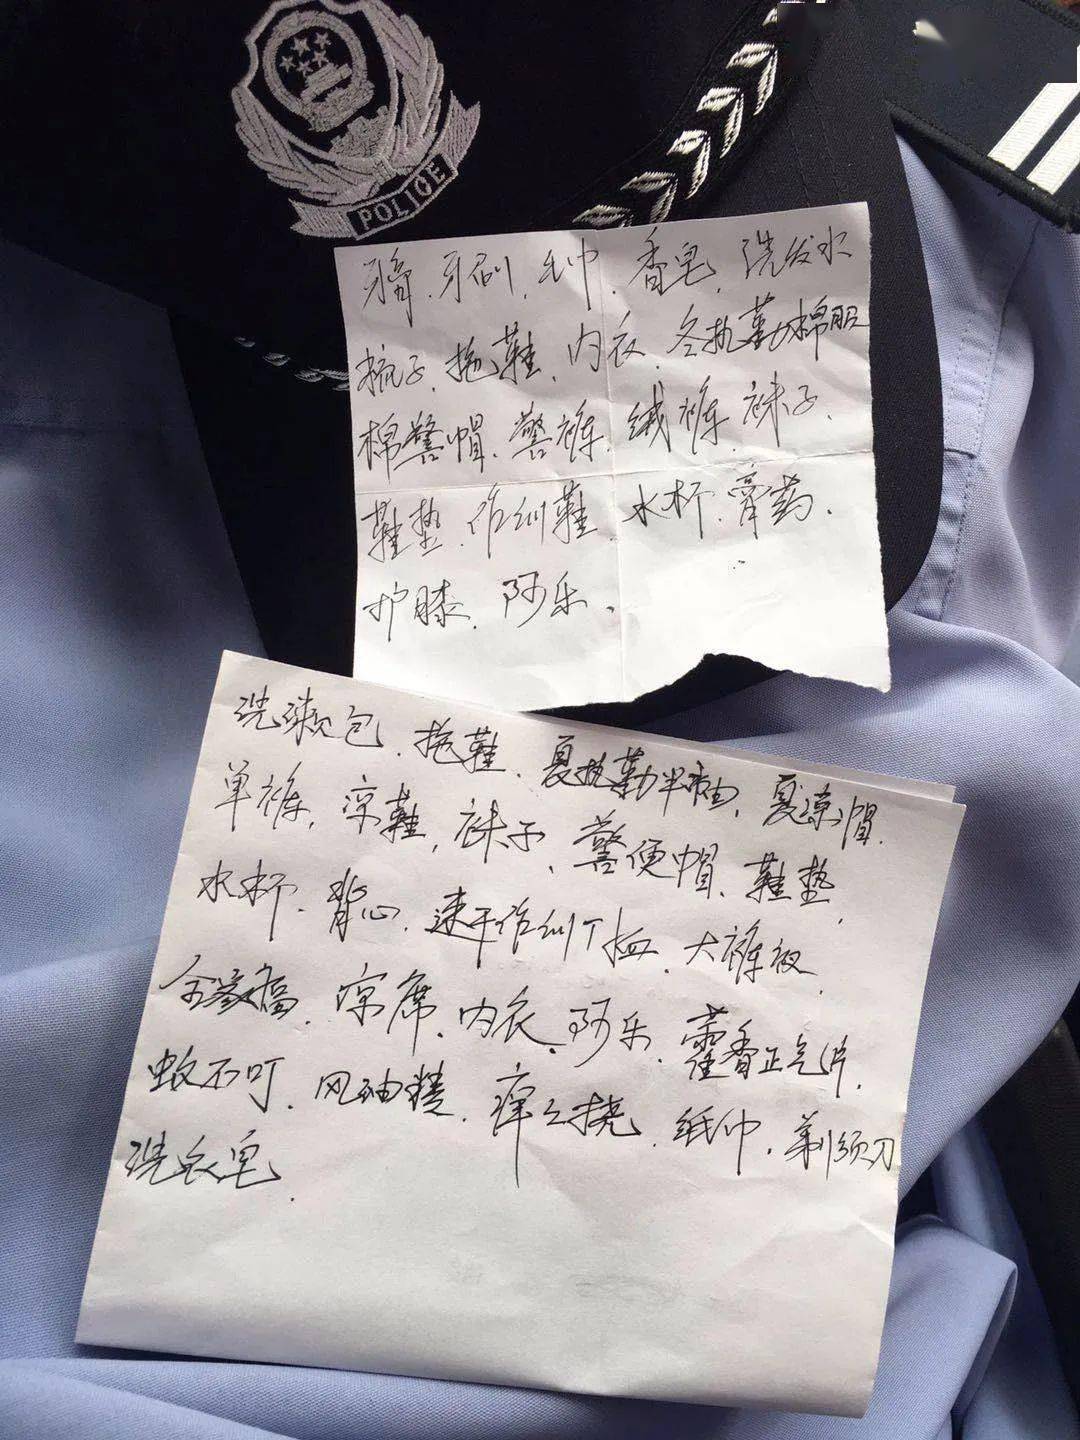 POLICE
牙膏、牙刷、毛巾、香皂、洗发水
梳子、拖鞋、内衣、冬执勤棉服
棉警帽、警裤、绒裤、袜子、
鞋垫、作训鞋、水杯、膏药、
护膝、阿乐、
洗漱包、拖鞋、夏执勤半袖、夏凉帽、
单裤、凉鞋、袜子、警便帽、鞋垫、
水杯、背心、速干作训T恤、大裤衩
凉席、内衣、阿乐、藿香正气片、
蚊不叮、风油精、痒之挠、纸巾、剃须刀
洗衣皂、